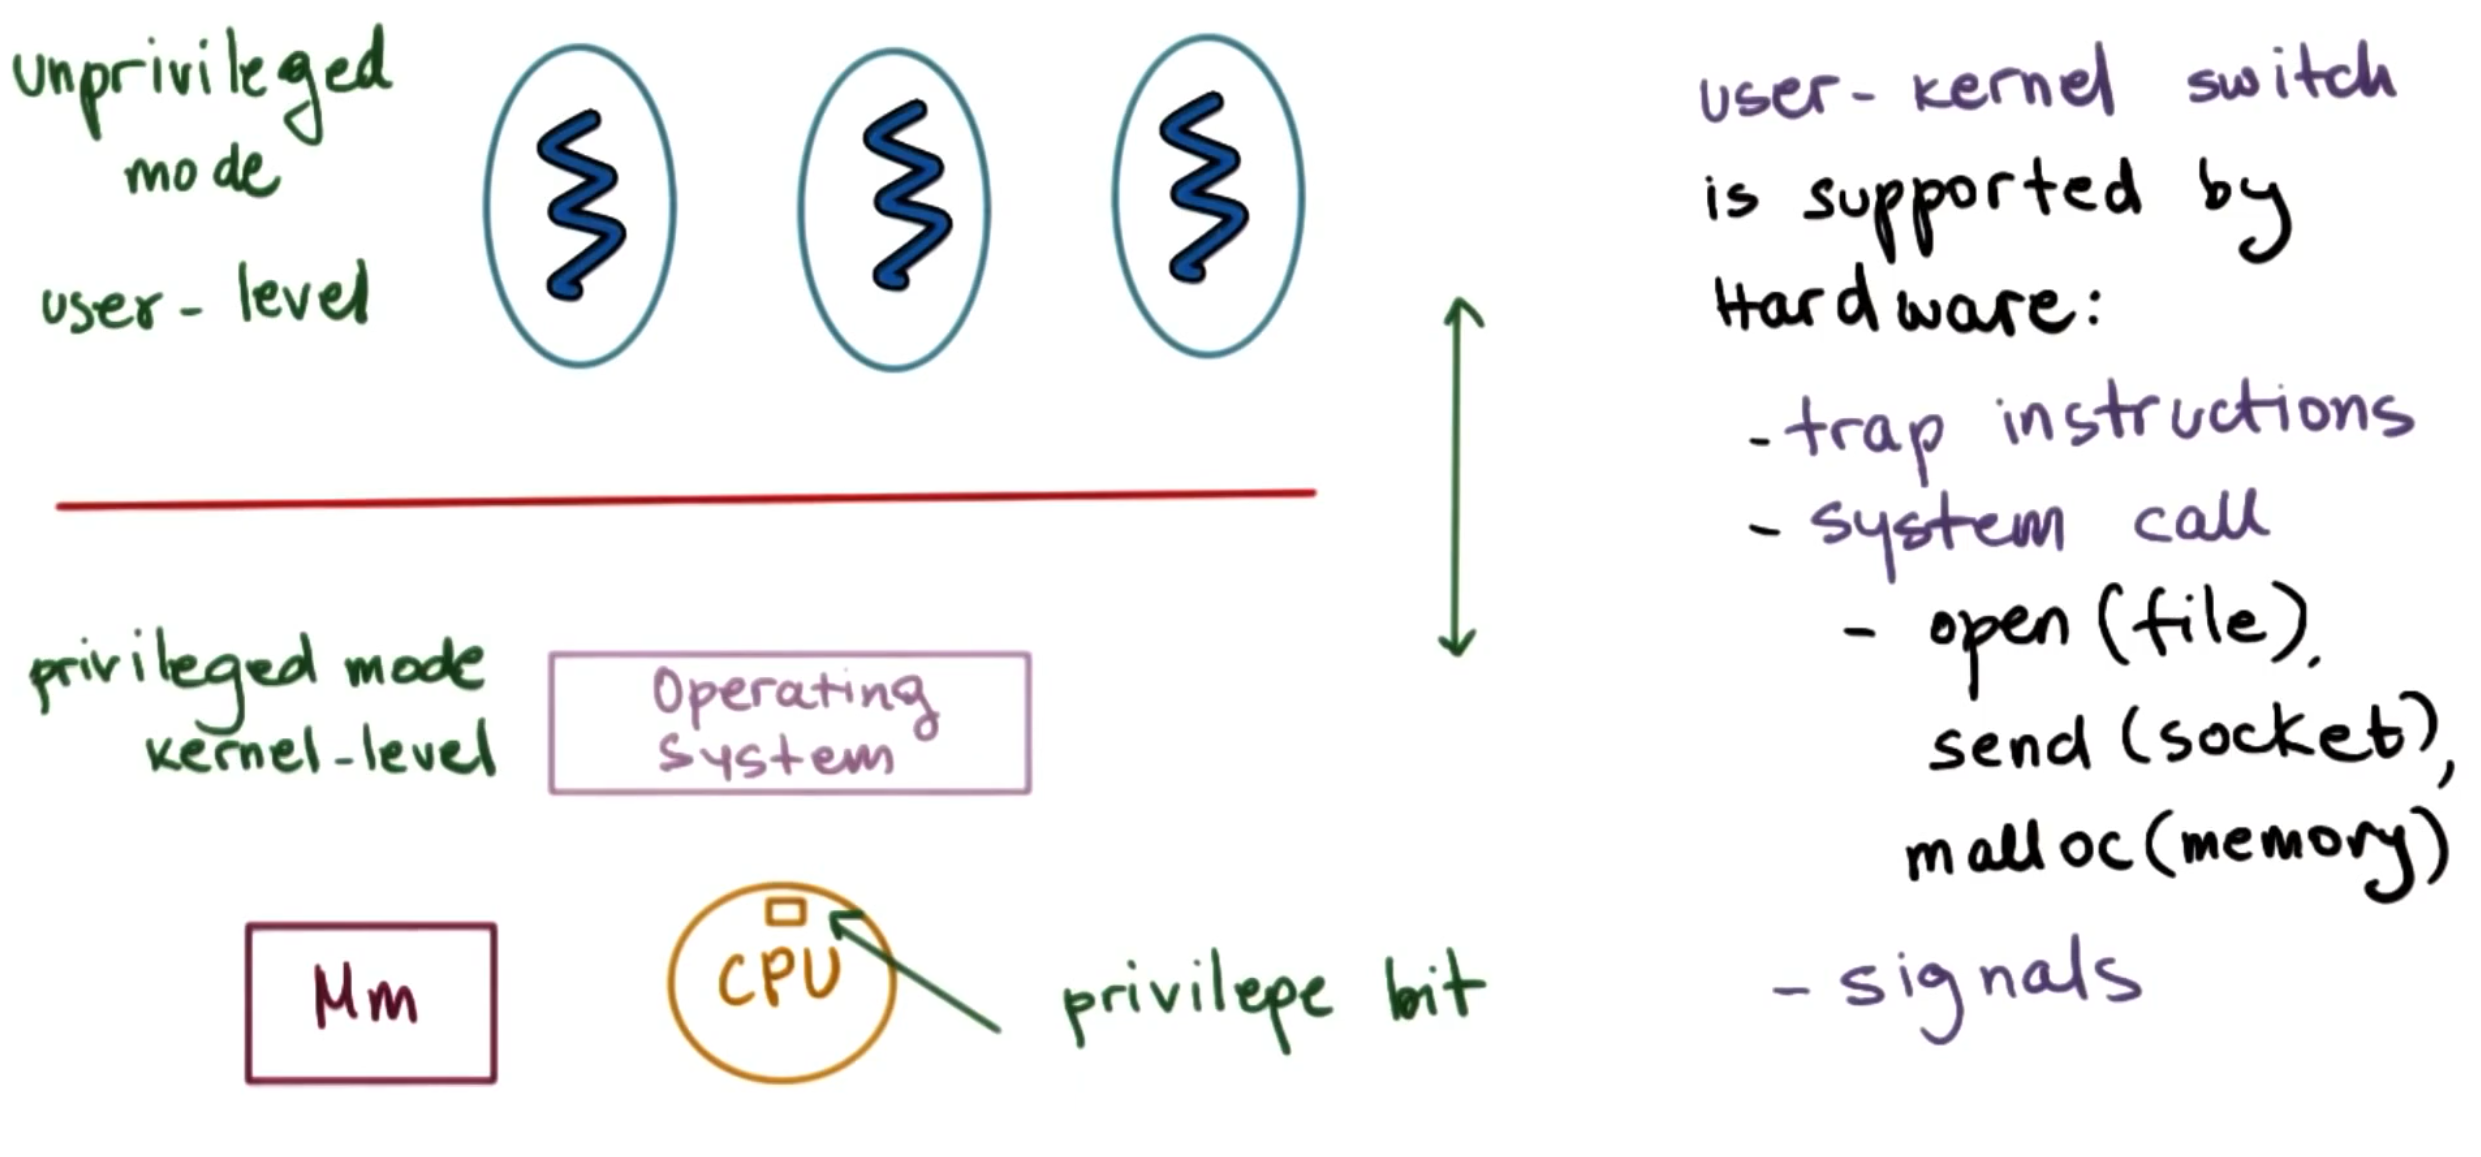 unprivileged
mode
user-level
privileged mode
kernel-level
Operating
System
Mm
CPU
privilege bit
user-kernel switch
is supported by
Hardware:
- trap instructions
- system call
- open (file),
send (socket),
malloc (memory)
- signals